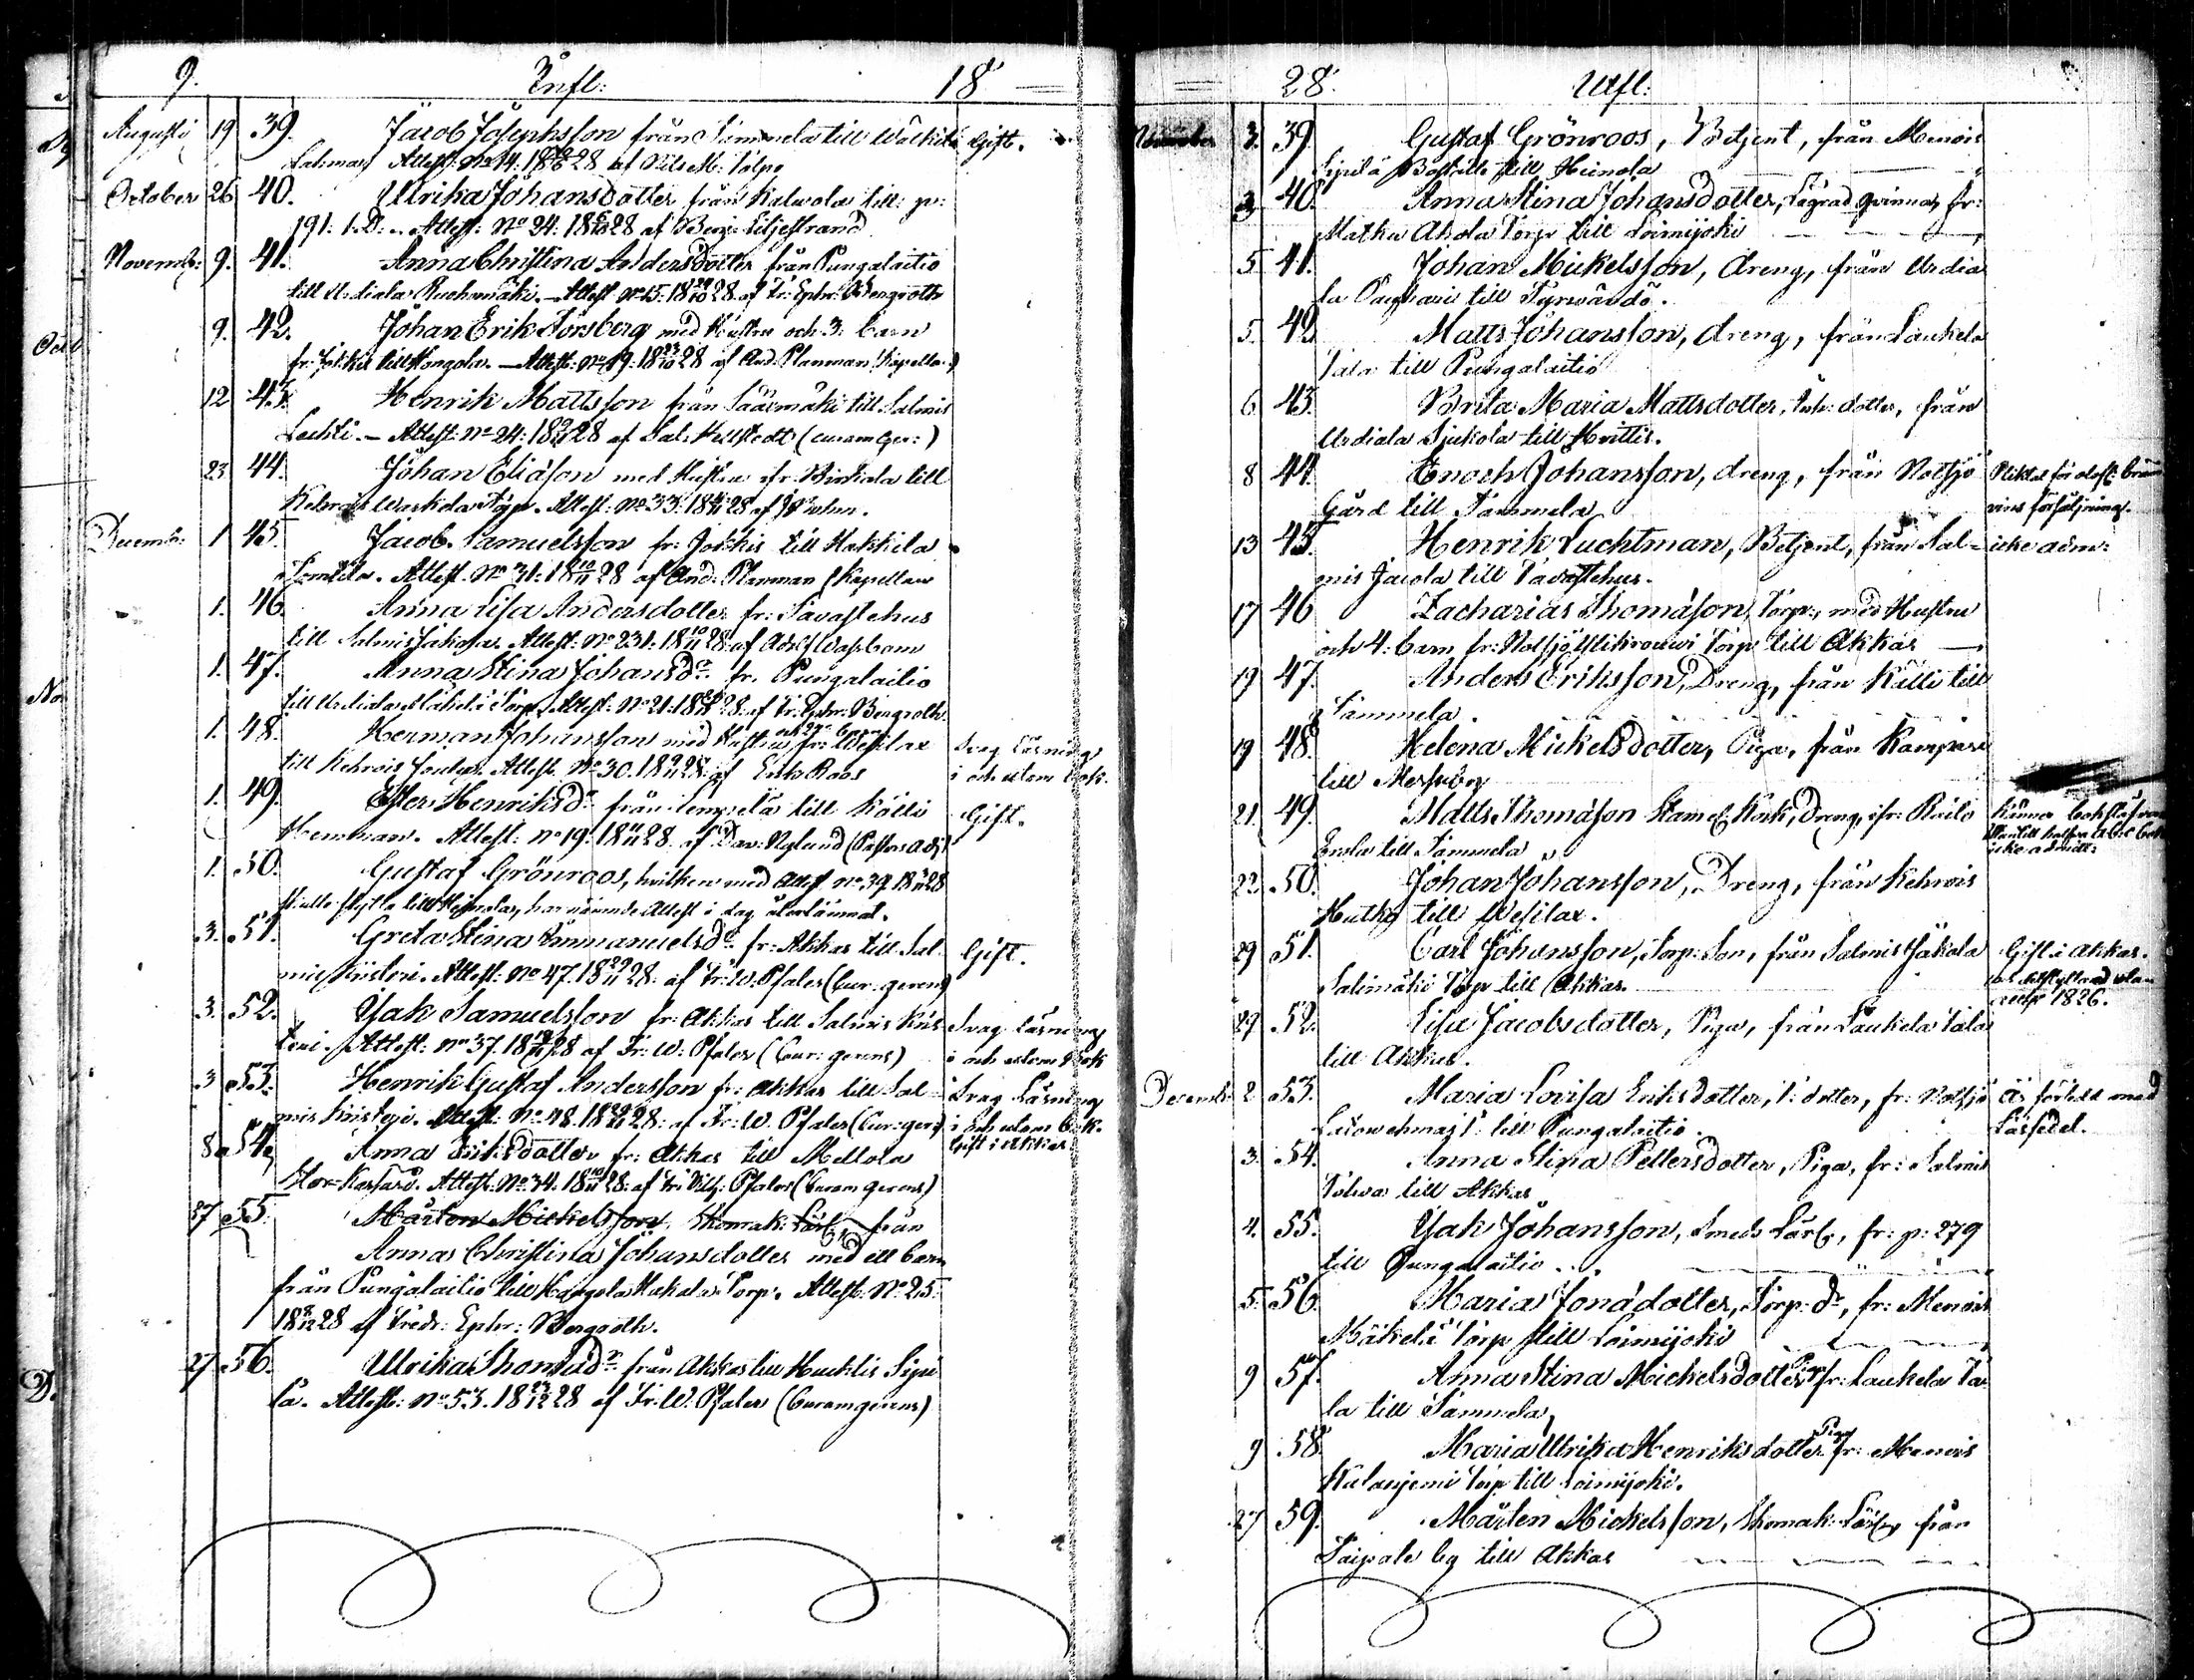 9. Infl: 18
Augusti 19 39. Jacob Josephsson från Tammela till Walkila Gift.
Attest No 14. 1828 af Nils M. Tolpo
October 26 40. Ulrika Johansdotter från Kalwola till p:
191. Attest: No 24. 1828 af Benj: Liljestrand
Novemb: 9. 41. Anna Christina Andersdotter från Pungalaitio
till Urdiala Ruohomäki. Attest No 15. 1828 af Fr: Ephr: Bergroth
9. 42. Johan Erik Forsberg med Hustru och 3. barn
fr: Jokkis till Hongola. Attest: No 19. 1828 af And: Planman (Kapellan)
12 43. Henrik Mattsson från Sääxmäki till Salmis
Lechti. Attest: No 24. 1828 af Sal: Hellstedt (curam ger:)
23 44. Johan Eliasson med Hustru fr: Birkala till
Kehrois Torp. Attest: No 33. 1828 af
Decemb: 1 45. Jacob Samuelsson fr: Jokkis till Hakkila
Attest. No 31. 1828 af And: Planman (Kapellan
1. 46. Anna Lisa Andersdotter fr: Tavastehus
till Salmis Jakola. Attest: No 231. 1828 af Adolf
1. 47. Anna Stina Johansdr fr. Pungalaitio
till Urdiala Torp. Attest: No 21. 1828. af Fr. Ephr. Bergroth
och barn
1. 48. Herman Johansson med Hustru fr: Wesilax Svag läsning
till Kehrois Attest. No 30. 1828 af Erik Roos i och utom bok.
1. 49. Ester Henriksdr från Lempäälä till Kölli Gift.
Hemman. Attest: No 19. 1828 af Dav: Nylund (Pastors adj:)
1. 50. Gustaf Grönroos, hvilken med Attest no 39 1828
skulle flytta till Heinola, har nämnde Attest i dag återlämnat.
3. 51. Greta Stina Emmanuelsdr fr: Akkas till Sal- Gift.
mis Kristeri. Attest: No 47. 1828 af Fr: W. Pfaler (Cur: gerens)
3. 52. Isak Samuelsson fr: Akkas till Salmis Kris- Svag läsning
teri. Attest: no 37. 1828 af Fr: W: Pfaler (Cur: gerens) i och utom bok
3 53. Henrik Gustaf Andersson fr: Akkas till Sal- Svag Läsning
mis Kristeri. Attest: No 48. 1828. af Fr: W. Pfaler (Cur: ger:) i och utom bok.
8 54. Anna Eriksdotter fr: Akkas till Mellola Gift i Akkas
Attest: No 34. 1828 af Fr: Wilh: Pfaler (Curam gerens)
27 55. Mårten Mickelsson, Skomak: Lärl: från
Anna Christina Johansdotter med ett barn
från Pungalaitio till Hongola Torp. Attest No 25.
1828 af Fredr: Ephr: Bergroth.
27 56. Ulrika Thomasdr från Akkas till Huchtis Sipi-
lä. Attest: No 53. 1828 af Fr: W: Pfaler (Curam gerens)
28. Utfl:
November 3. 39. Gustaf Grönroos, Betjent, från Menois
Sipilä Boställe till Heinola
3. 40. Anna Stina Johansdotter, Lägrad qvinna, fr:
Matku Ahola Torp till Loimijoki
5 41. Johan Mickelsson, dreng, från Urdia-
la till Tyrwändö.
5. 42. Matts Johansson, dreng, från Laukela
Tala till Pungalaitio
6. 43. Brita Maria Mattsdotter, Inh: dotter, från
Urdiala Sjukola till Hvittis.
8 44. Enoch Johansson, dreng, från Notsjö Pliktat för olofl: bränn-
Gård till Tammela vins försäljning.
13 45. Henrik Luchtman, Betjent, från Sal- icke adm:
mis Jacola till Tavastehus.
17 46 Zacharias Thomasson, Torp:, med Hustru
och 4. barn fr: Notsjö Torp till Akkas
19 47. Anders Eriksson, Dreng, från Kölli till
Tammela.
19 48. Helena Mickelsdotter, Piga, från Kampari
till
21. 49. Matts Thomasson Dreng, fr: Känner bokstäfverna
Erola till Tammela icke admitt:
22. 50. Johan Johansson, Dreng, från Kehrois
Hutko till Wesilax.
29 51. Carl Johansson, Torp: Son, från Salmis Jakola Gift i Akkas.
Salimäki Torp till Akkas. 1826.
29. 52. Lisa Jacobsdotter, Piga, från Laukela Tala
till Akkas.
Decemb: 2 53. Maria Lovisa Eriksdotter, T: dotter, fr: Notsjö Är försedd med
till Pungalaitio. Läsedel.
3. 54. Anna Stina Pettersdotter, Piga, fr: Salmis
Tolwa till Akkas
4. 55. Isak Johansson, Smeds Lärl:, fr: p: 279
till Pungalaitio
5. 56. Maria Jonadotter, Torp: dr, fr: Menois
Mäkelä Torp till Loimijoki
9 57. Anna Stina Mickelsdotter Piga fr: Laukela Ta-
la till Tammela
9 58. Maria Ulrika Henriksdotter Piga fr: Menois
Torp till Loimijoki.
27 59. Mårten Mickelsson, Skomak: Lärl: från
Taipale by till Akkas